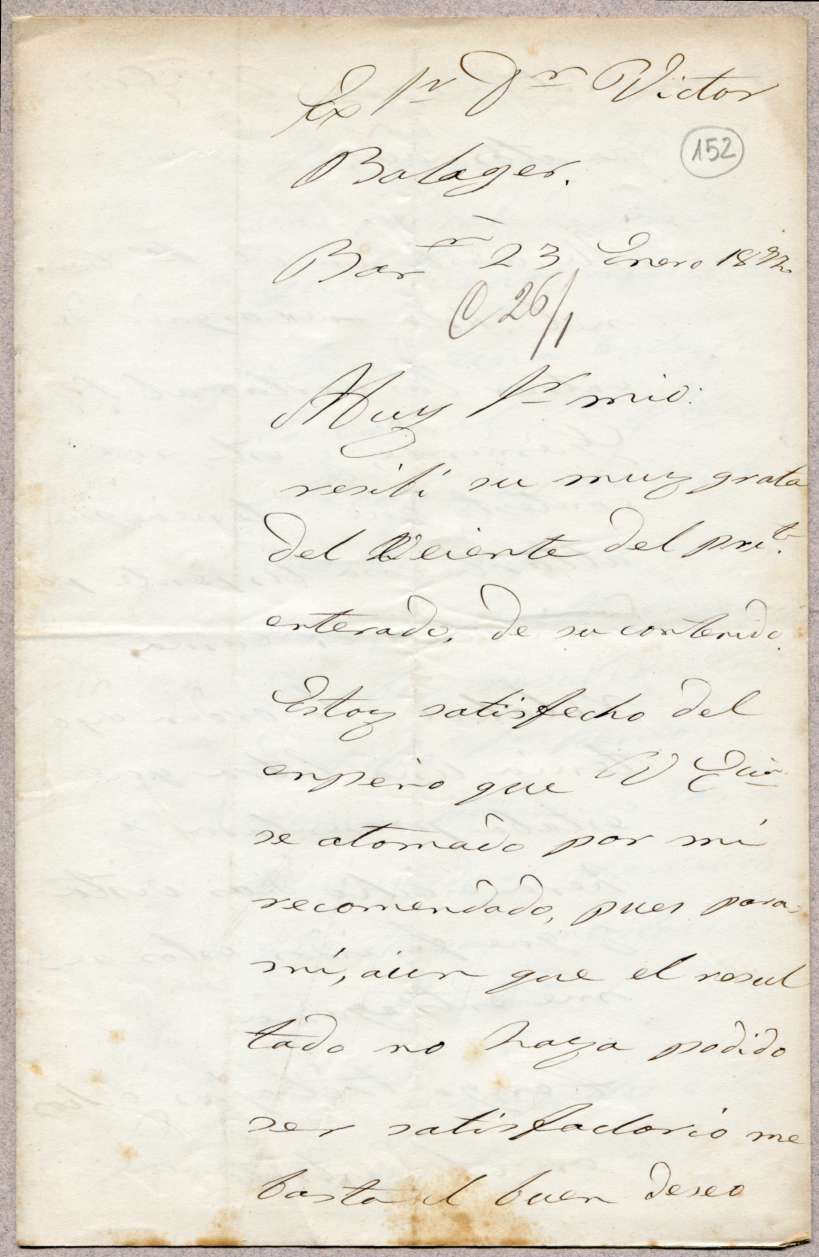 Ex Sr Dr Victor
Balager.
152
Barna 23 Enero 1892
C 26/1
Muy Sr mio:
resibí su muy grata
del Veiente del prte.
enterado, de su contenido.
Estoy satisfecho del
enpeño que V Ecia
se atomado por mi
recomendado, pues para
mí, aun que el resul
tado no haya podido
ser satisfactorio me
basta el buen deseo